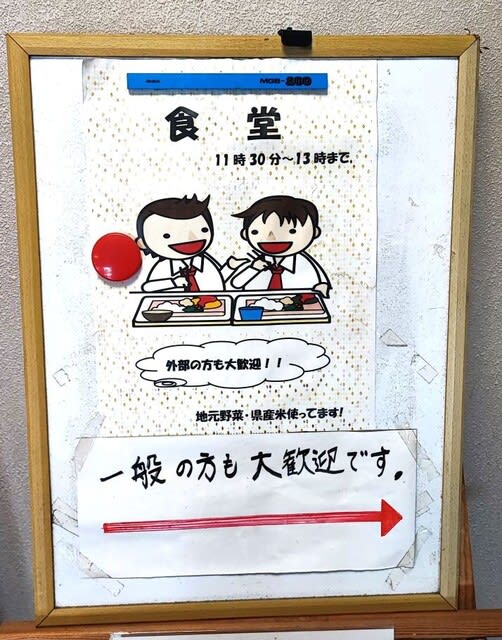 MGB-200
食堂
11時30分～13時まで。
外部の方も大歓迎！！
地元野菜・県産米使ってます!
一般の方も大歓迎です。